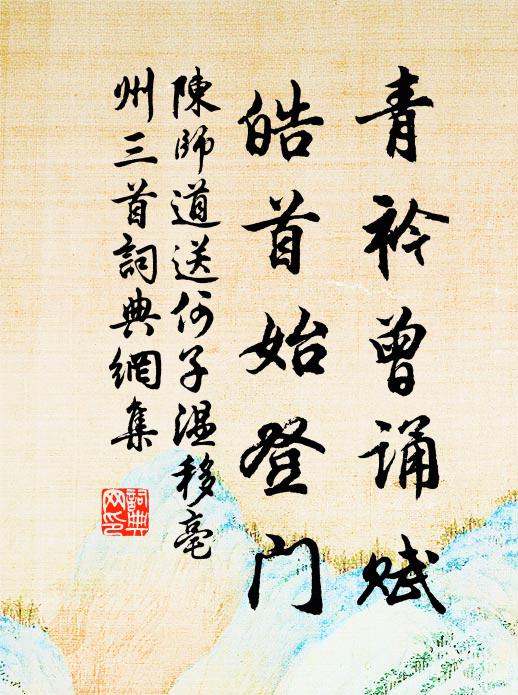 青衿曾誦賦
皓首始登門
陳師道送何子溫移亳
州三首詞典網集
詞典
网印